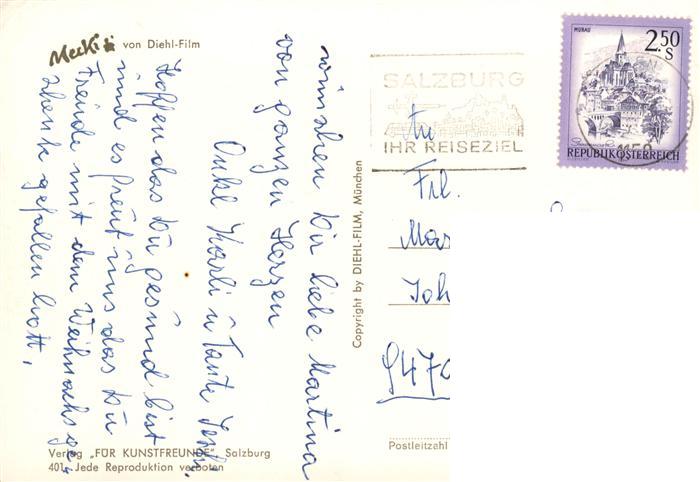 Mecki von Diehl-Film
wünschen Dir liebe Martina
von ganzen Herzen
Onkl Karli u Tante
Hoffen das Du gesund bist
und es freut uns das Du
Freude mit dem Weihnachsge„
schenk gefallen hatt.
Verlag „FÜR KUNSTFREUNDE“, Salzburg
401 Jede Reproduktion verboten
Copyright by DIEHL-FILM, München
SALZBURG
IHR REISEZIEL
MURAU
2.50
S
REPUBLIK ÖSTERREICH
An
Frl.
Mar
Joh
9470
Postleitzahl